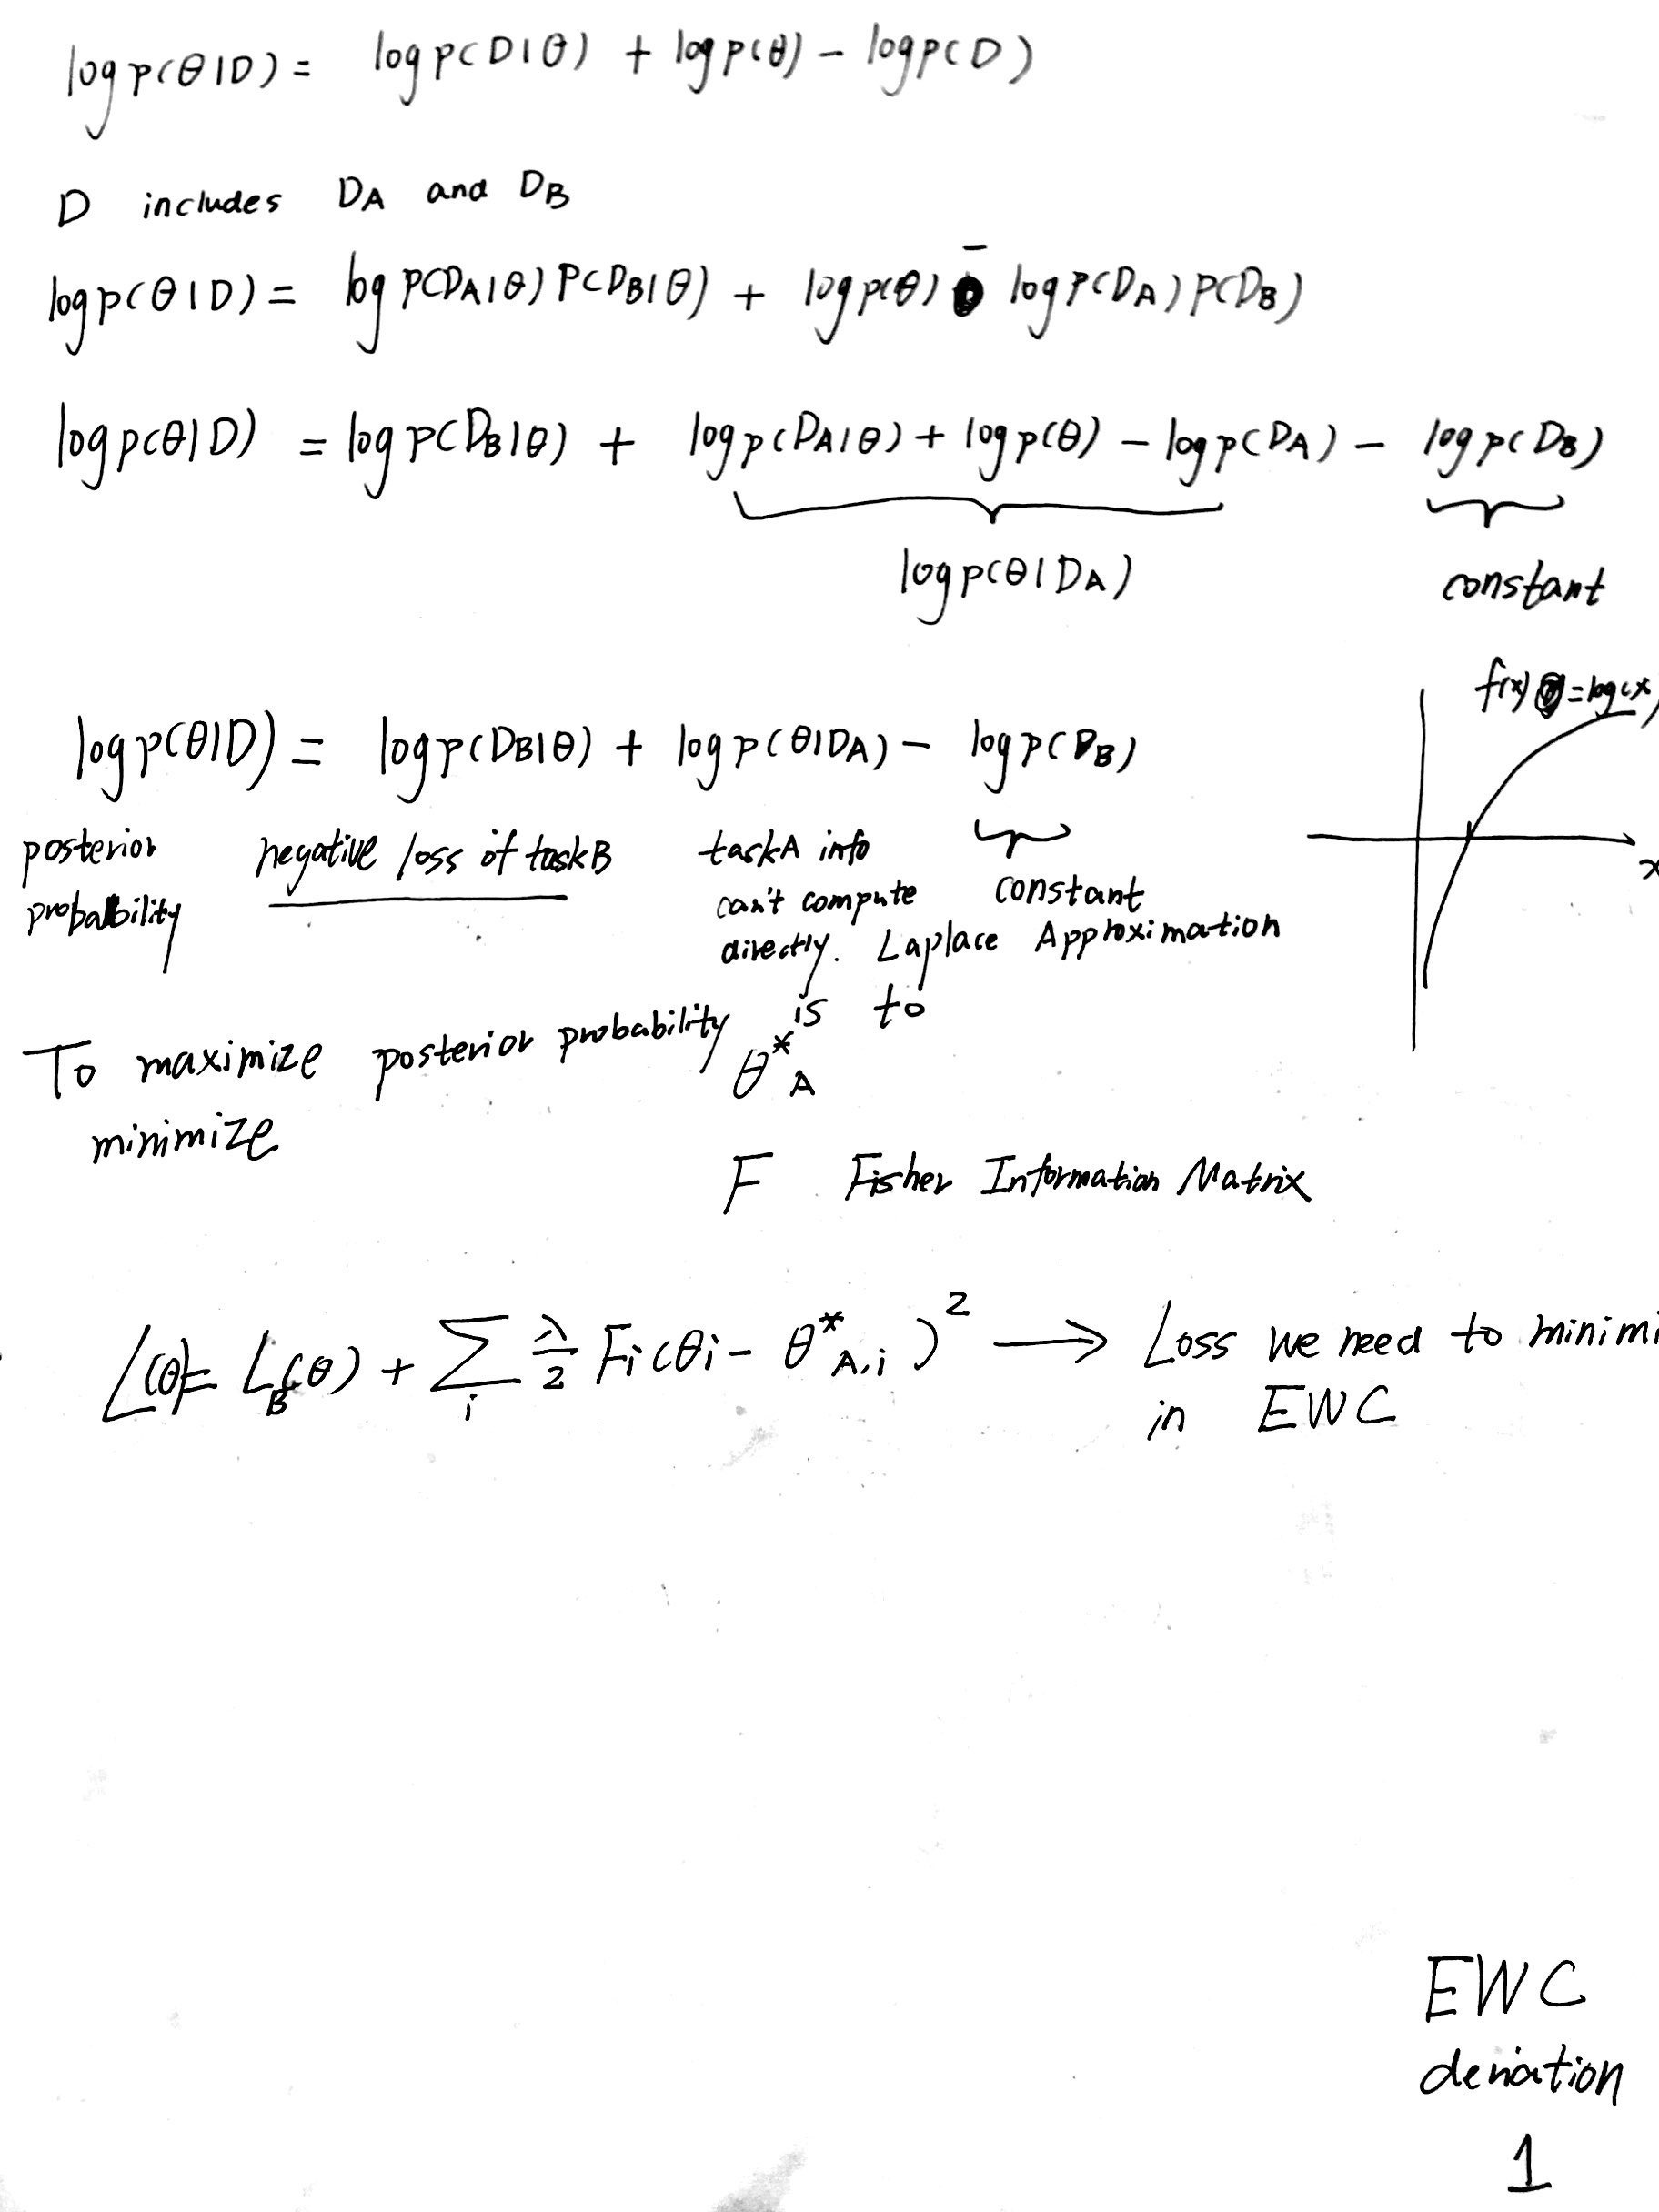 log p(θ|D) = log p(D|θ) + log p(θ) − log p(D)
D includes D_A and D_B
log p(θ|D) = log P(D_A|θ) P(D_B|θ) + log p(θ) − log P(D_A) P(D_B)
log p(θ|D) = log P(D_B|θ) + log p(D_A|θ) + log p(θ) − log p(D_A) − log p(D_B)
log p(θ|D_A) constant
f(x) = log(x)
log p(θ|D) = log p(D_B|θ) + log p(θ|D_A) − log p(D_B)
x
posterior negative loss of task B task A info
probability can't compute constant
directly. Laplace Approximation
To maximize posterior probability is to
minimize
θ*_A
F Fisher Information Matrix
L(θ) = L_B(θ) + Σ_i λ/2 F_i (θ_i − θ*_{A,i})² → Loss we need to minimi
in EWC
EWC
deriation
1